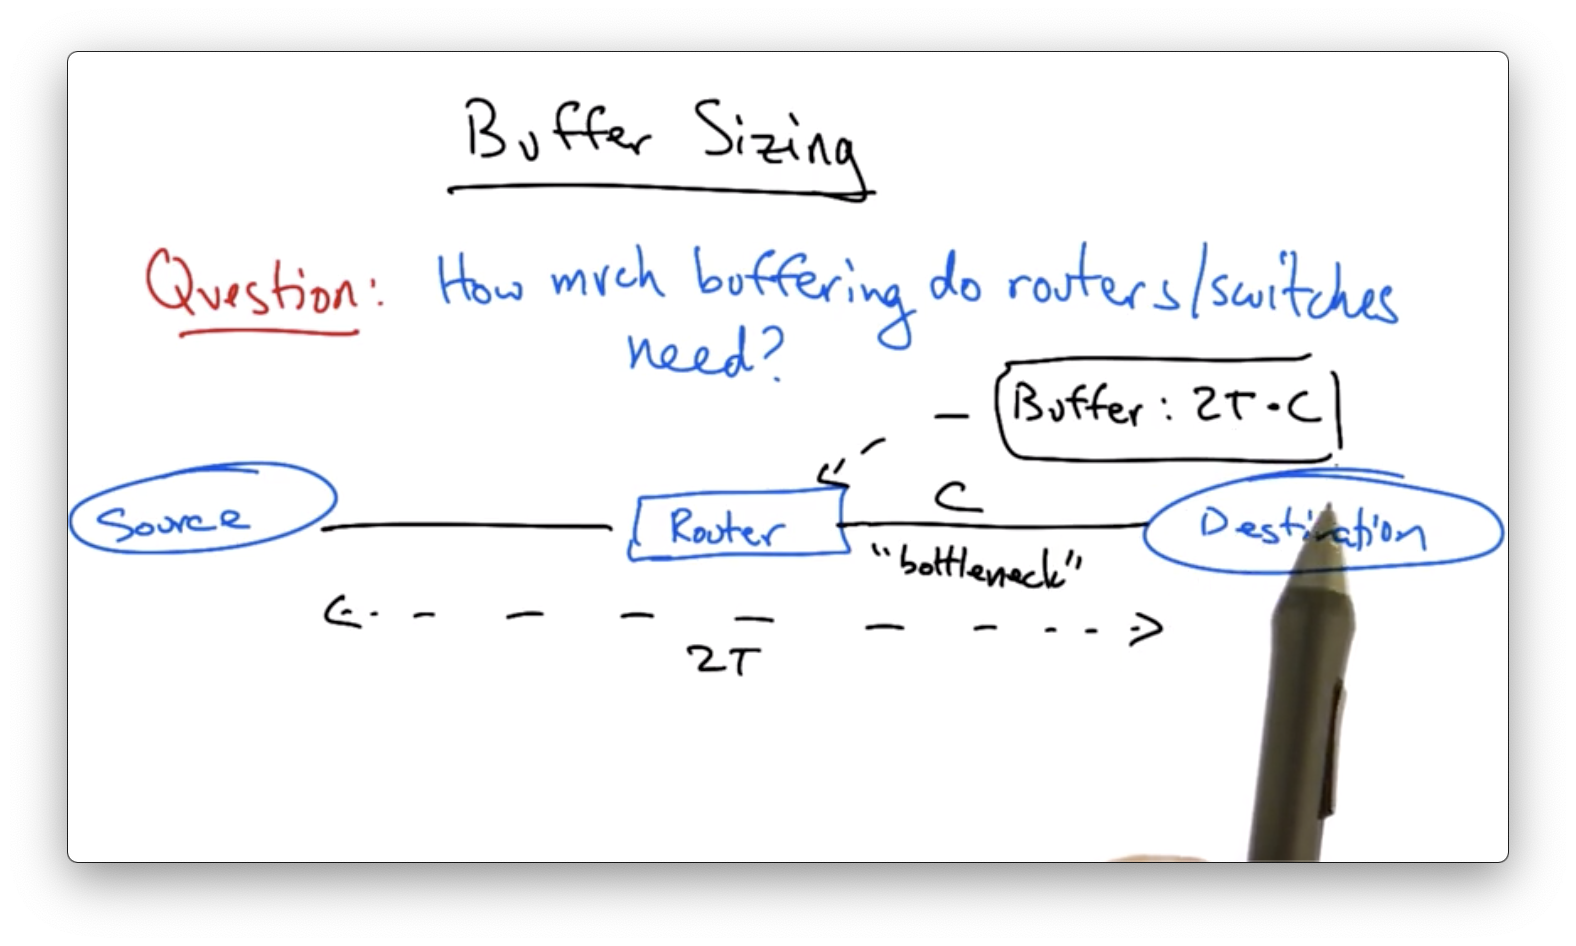 Buffer Sizing
Question: How much buffering do routers/switches
need?
Buffer: 2T·C
Source
Router
C
"bottleneck"
Destination
2T